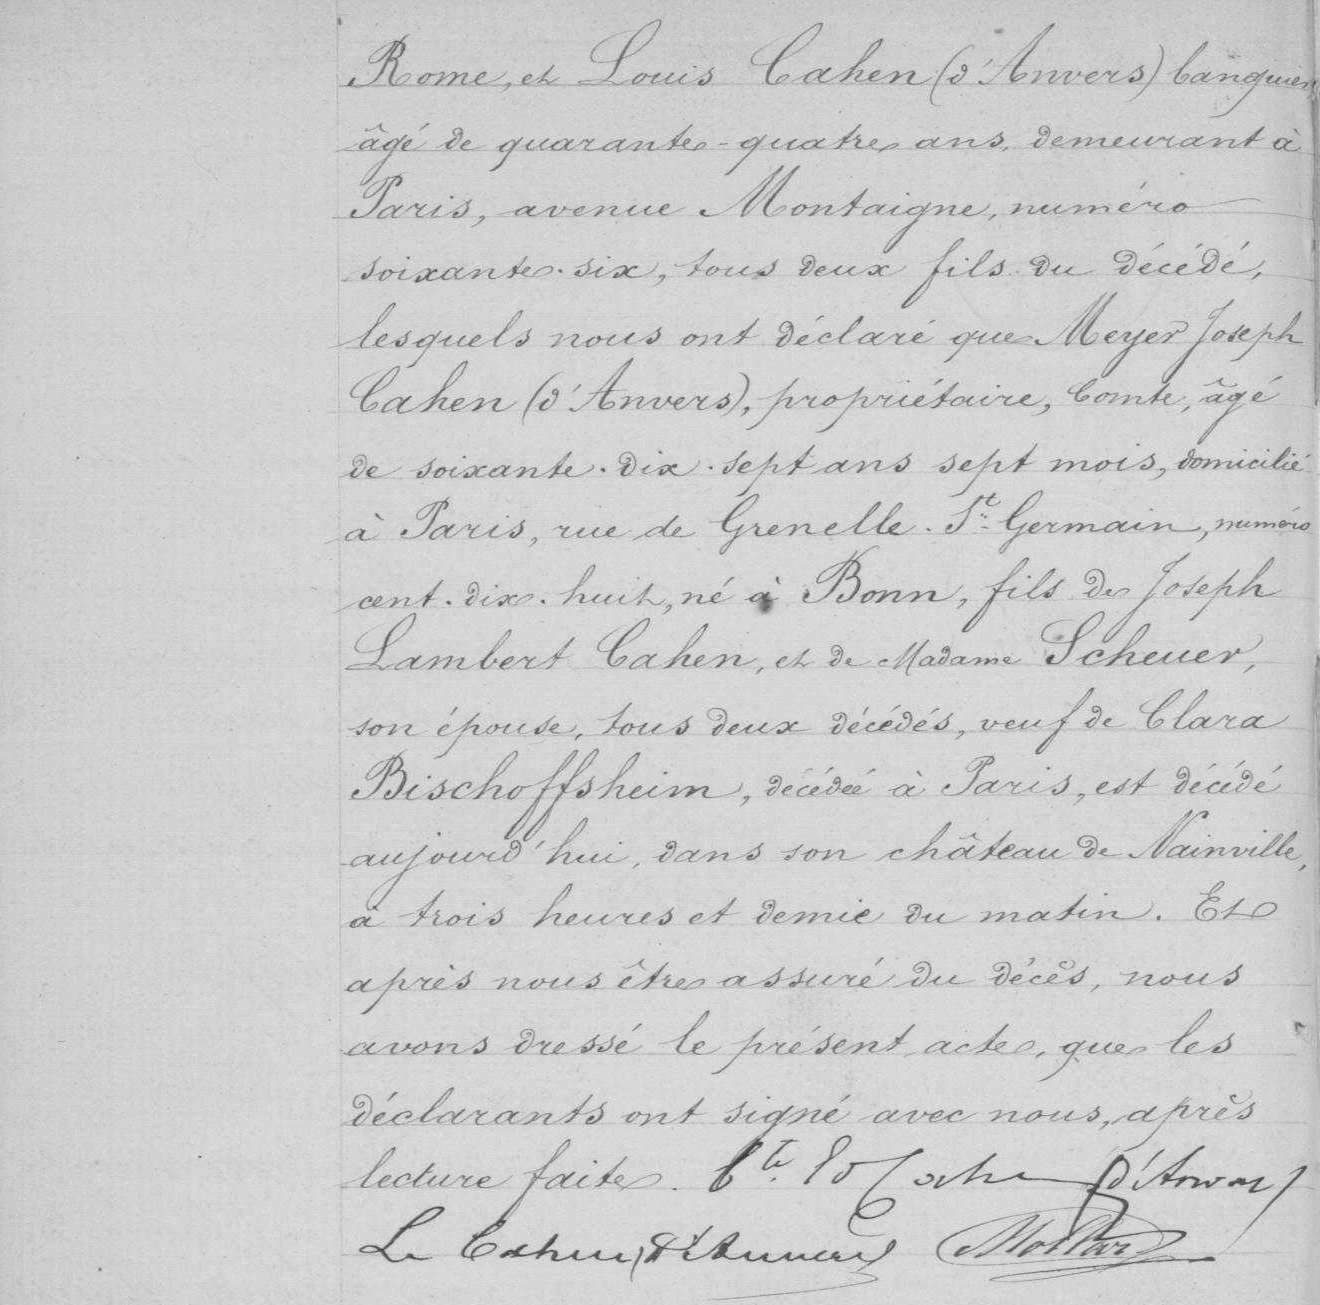 Rome, et Louis Cahen (d'Anvers) banquier,
âgé de quarante-quatre ans, demeurant à
Paris, avenue Montaigne, numéro
soixante-six, tous deux fils du décédé,
lesquels nous ont déclaré que Meyer Joseph
Cahen (d'Anvers), propriétaire, Comte, âgé
de soixante-dix-sept ans sept mois, domicilié
à Paris, rue de Grenelle-St-Germain, numéro
cent-dix-huit, né à Bonn, fils de Joseph
Lambert Cahen, et de Madame Scheuer,
son épouse, tous deux décédés, veuf de Clara
Bischoffsheim, décédée à Paris, est décédé
aujourd'hui, dans son château de Nainville,
à trois heures et demie du matin. Et
après nous être assuré du décès, nous
avons dressé le présent acte, que les
déclarants ont signé avec nous, après
lecture faite. Cte Ed Cahen (d'Anvers)
L. Cahen (d'Anvers)